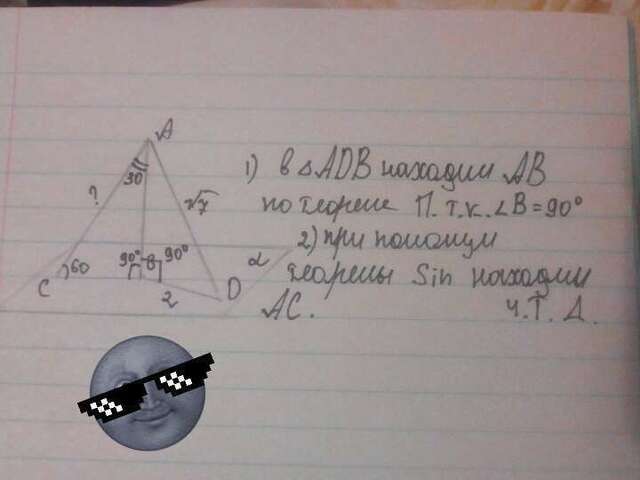 A
30
?
√7
90°
B
90°
60
C
2
D
α
1) в △ADB находим AB
по теореме П. т.к. ∠B = 90°
2) при помощи
теоремы Sin находим
AC. Ч.Т.Д.